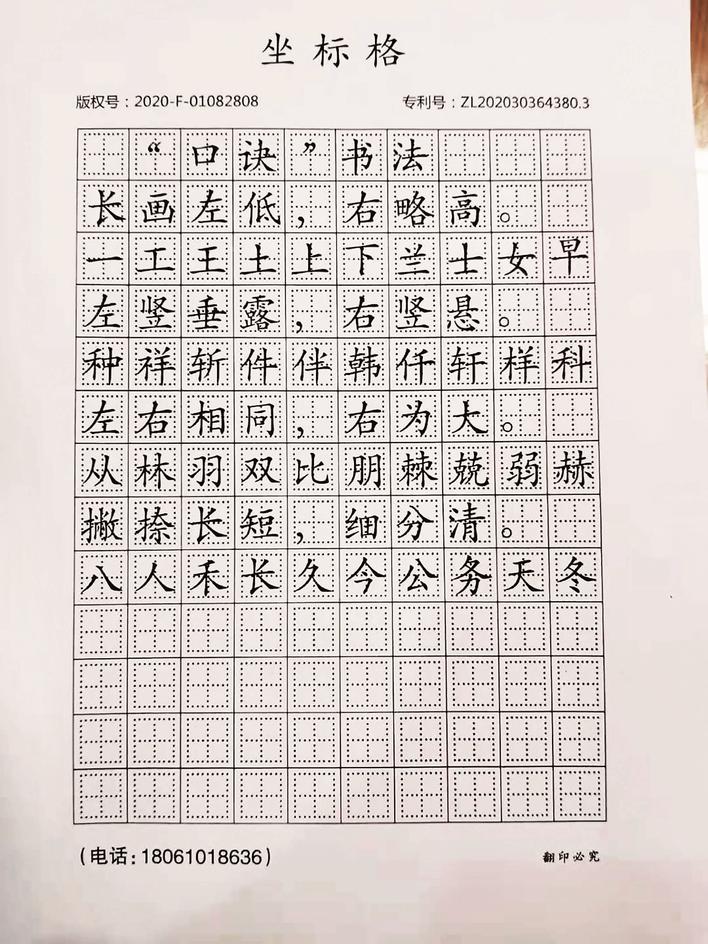 坐标格
版权号：2020-F-01082808 专利号：ZL202030364380.3
“口诀”书法
长画左低，右略高。
一工王土上下兰士女早
左竖垂露，右竖悬。
种祥斩件伴韩仟轩样科
左右相同，右为大。
从林羽双比朋棘兢弱赫
撇捺长短，细分清。
八人禾长久今公务天冬
（电话：18061018636） 翻印必究